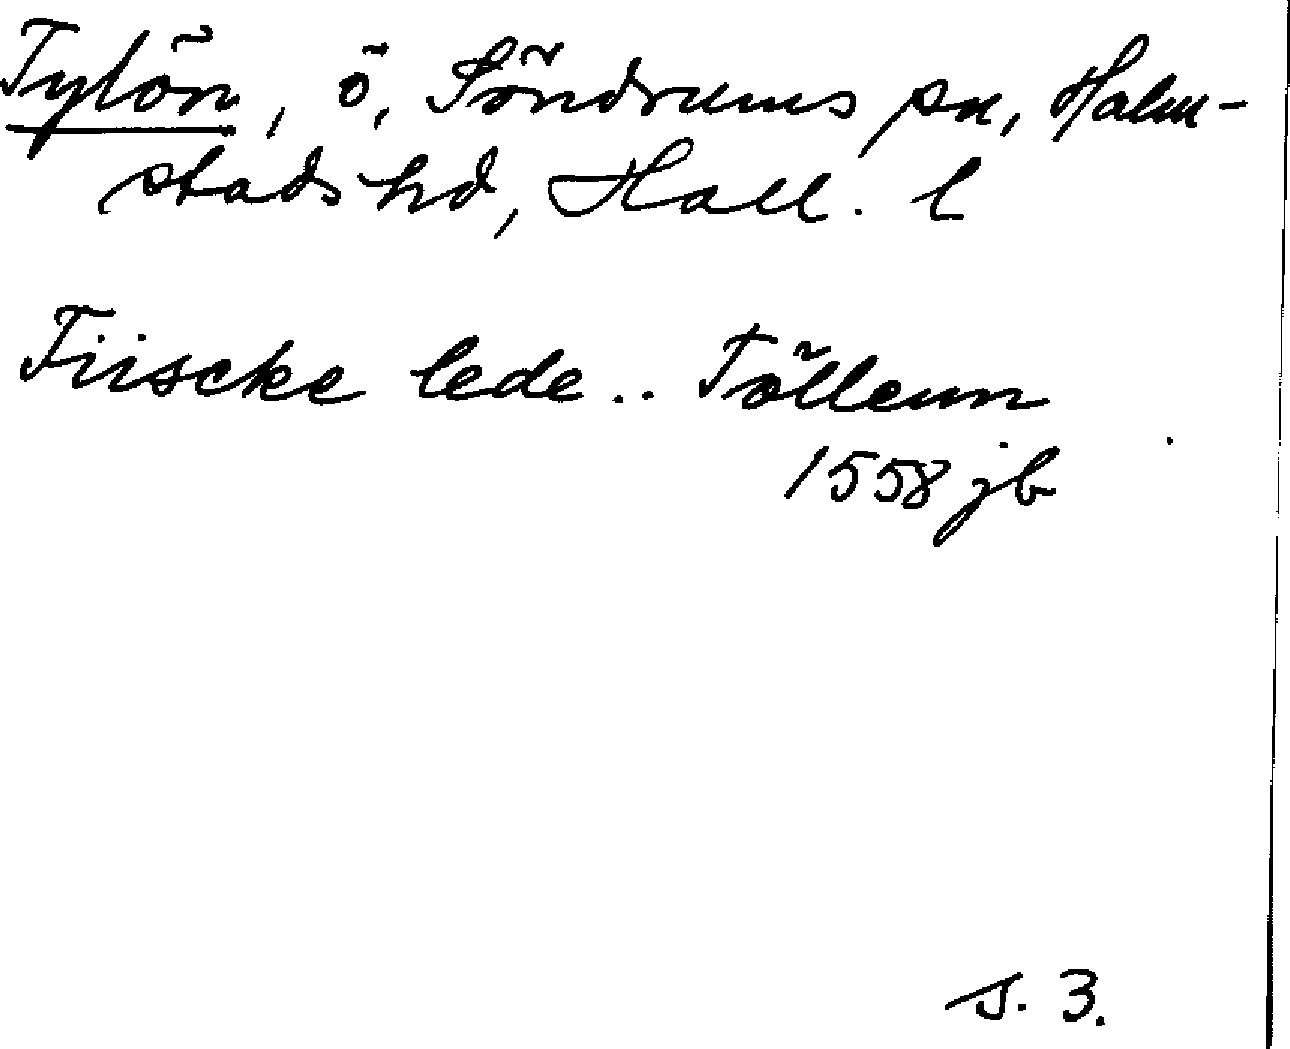 Tylön, ö, Söndrums sn, Halm-
stads hd, Hall. l
Fiiscke lede.. Tölleunn
1558 jb
s. 3.